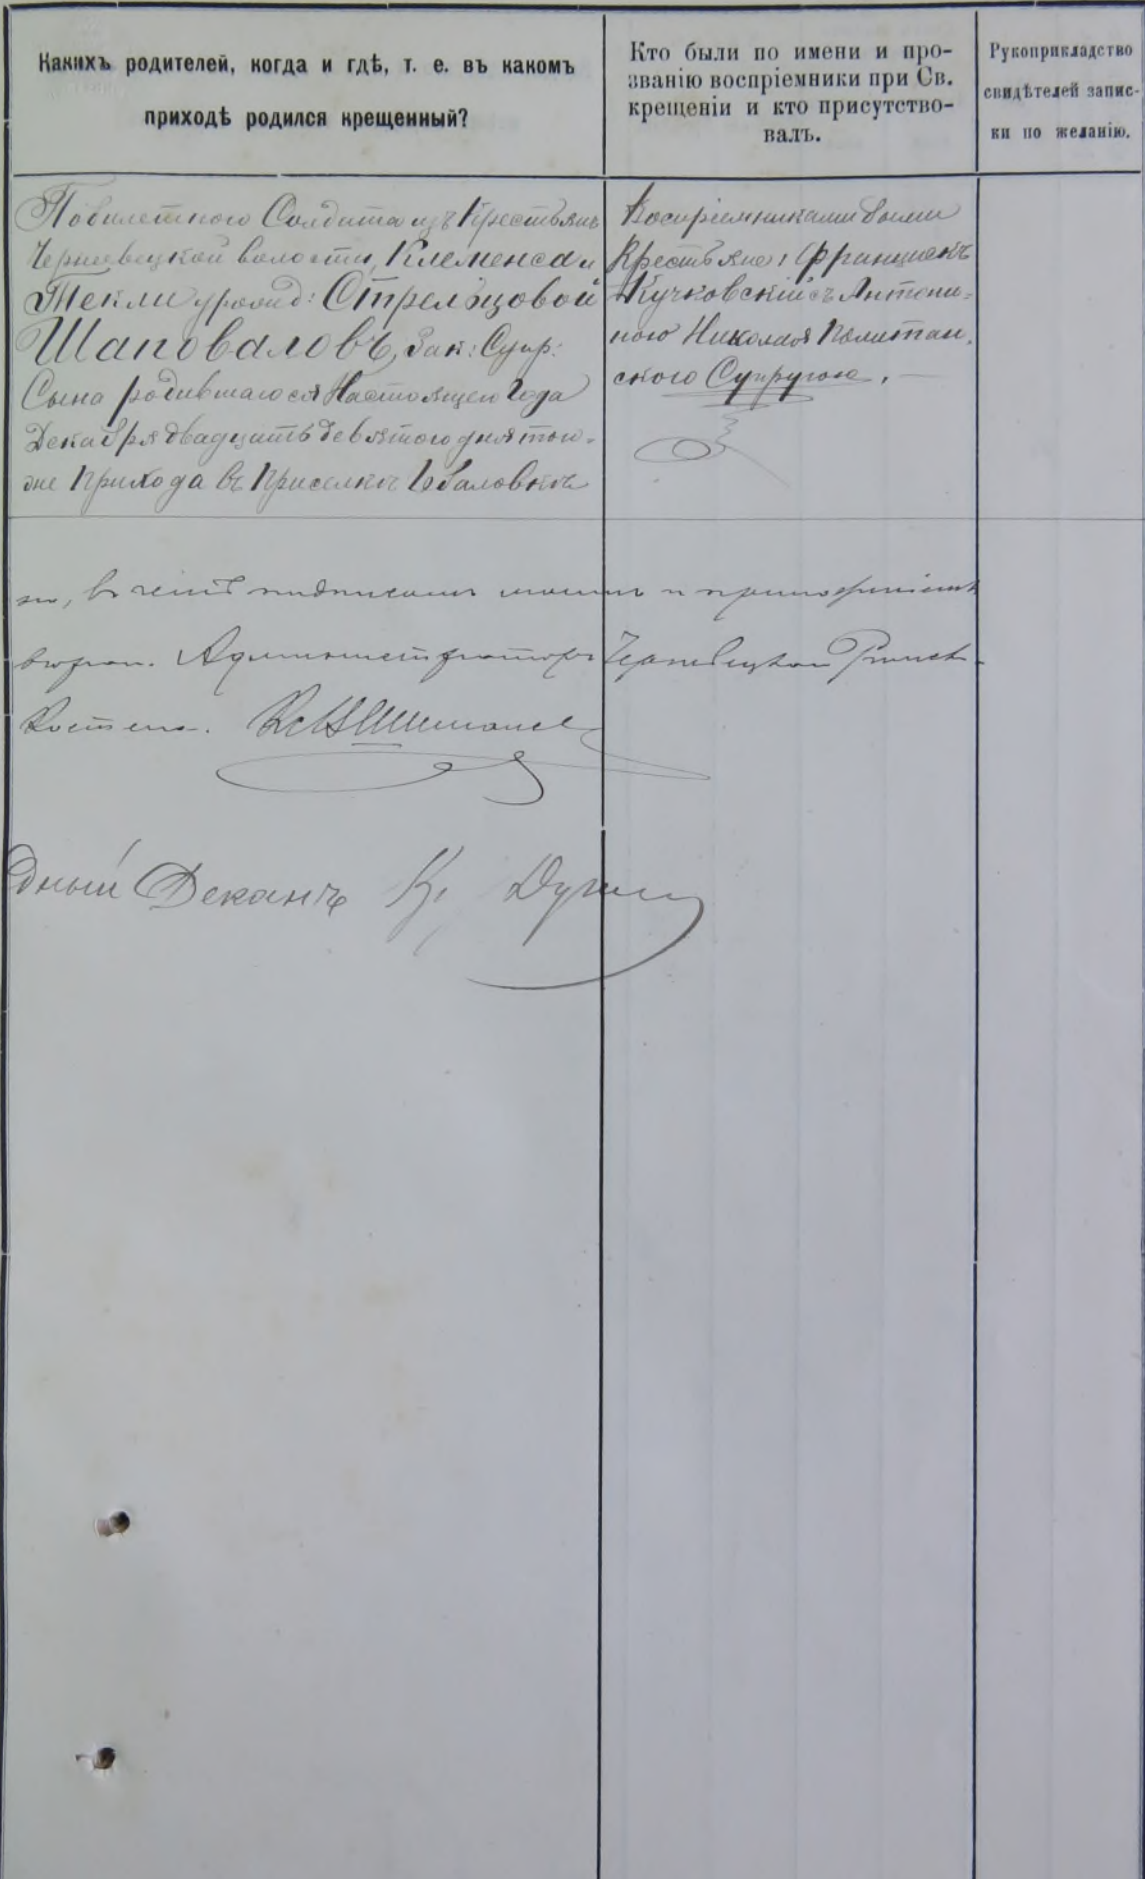 Какихъ родителей, когда и гдѣ, т. е. въ какомъ
приходѣ родился крещенный?
Кто были по имени и про-
званію воспріемники при Св.
крещеніи и кто присутство-
валъ.
Рукоприкладство
свидѣтелей запис-
ки по желанію.
Побилетного Солдата изъ Крестьянъ
Черневецкой волости, Клеменса и
Текли урожд: Стрельцовой
Шаповаловъ, Зак: Супр:
Сына родившагося Настоящего Года
Декабря двадцать девятого дня того-
же Прихода въ Приселке
Воспріемниками были
Крестьяне: Францишекъ
Кучковскій съ Антони-
ною Николая Политан-
ского Супругою. —
въ чемъ подписомъ моимъ и
Администраторъ Черневецкой Римск-
Костела.
дный Деканъ К.